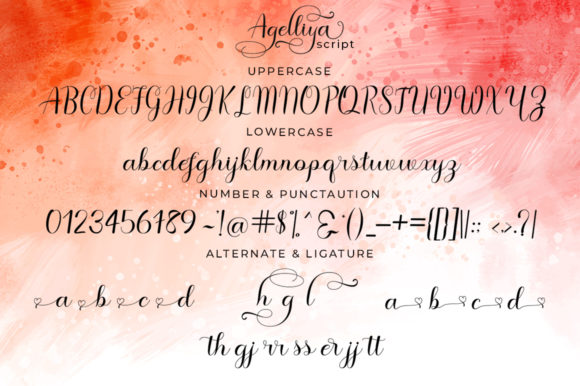 Agelliya
script
UPPERCASE
ABCDEFGHIJKLMNOPQRSTUVWXYZ
LOWERCASE
abcdefghijklmnopqrstuvwxyz
NUMBER & PUNCTAUTION
0123456789 ~`!@#$%^&*()_-+={[}]|\:; <,>.?/
ALTERNATE & LIGATURE
a b c d h g l a b c d
th gj rr ss er jj tt